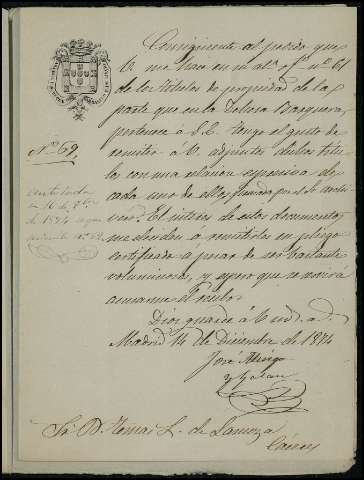 Consiguiente al pedido que
V. me hace en su atº ofº nº 61
de los títulos de propiedad de la
parte que en la Dehesa Barquera,
pertenece á S.E. tengo el gusto de
remitir á V. adjuntos dichos títu
los con una relacion espresiva de
cada uno de ellos, firmada por el Sr. archi
vero. El interés de estos documentos
me obliga á remitirlos en pliego
certificado a pesar de ser bastante
voluminoso, y espero que se servirá
acusarme el recibo.
Dios guarde á V. ms. as.
Madrid 14 de Diciembre de 1874
José
y Galan
Nº 69.
Contestada
en 16 de Dbre
de 1874
nº 69
Sr. D. Tomas L. de
Cáceres